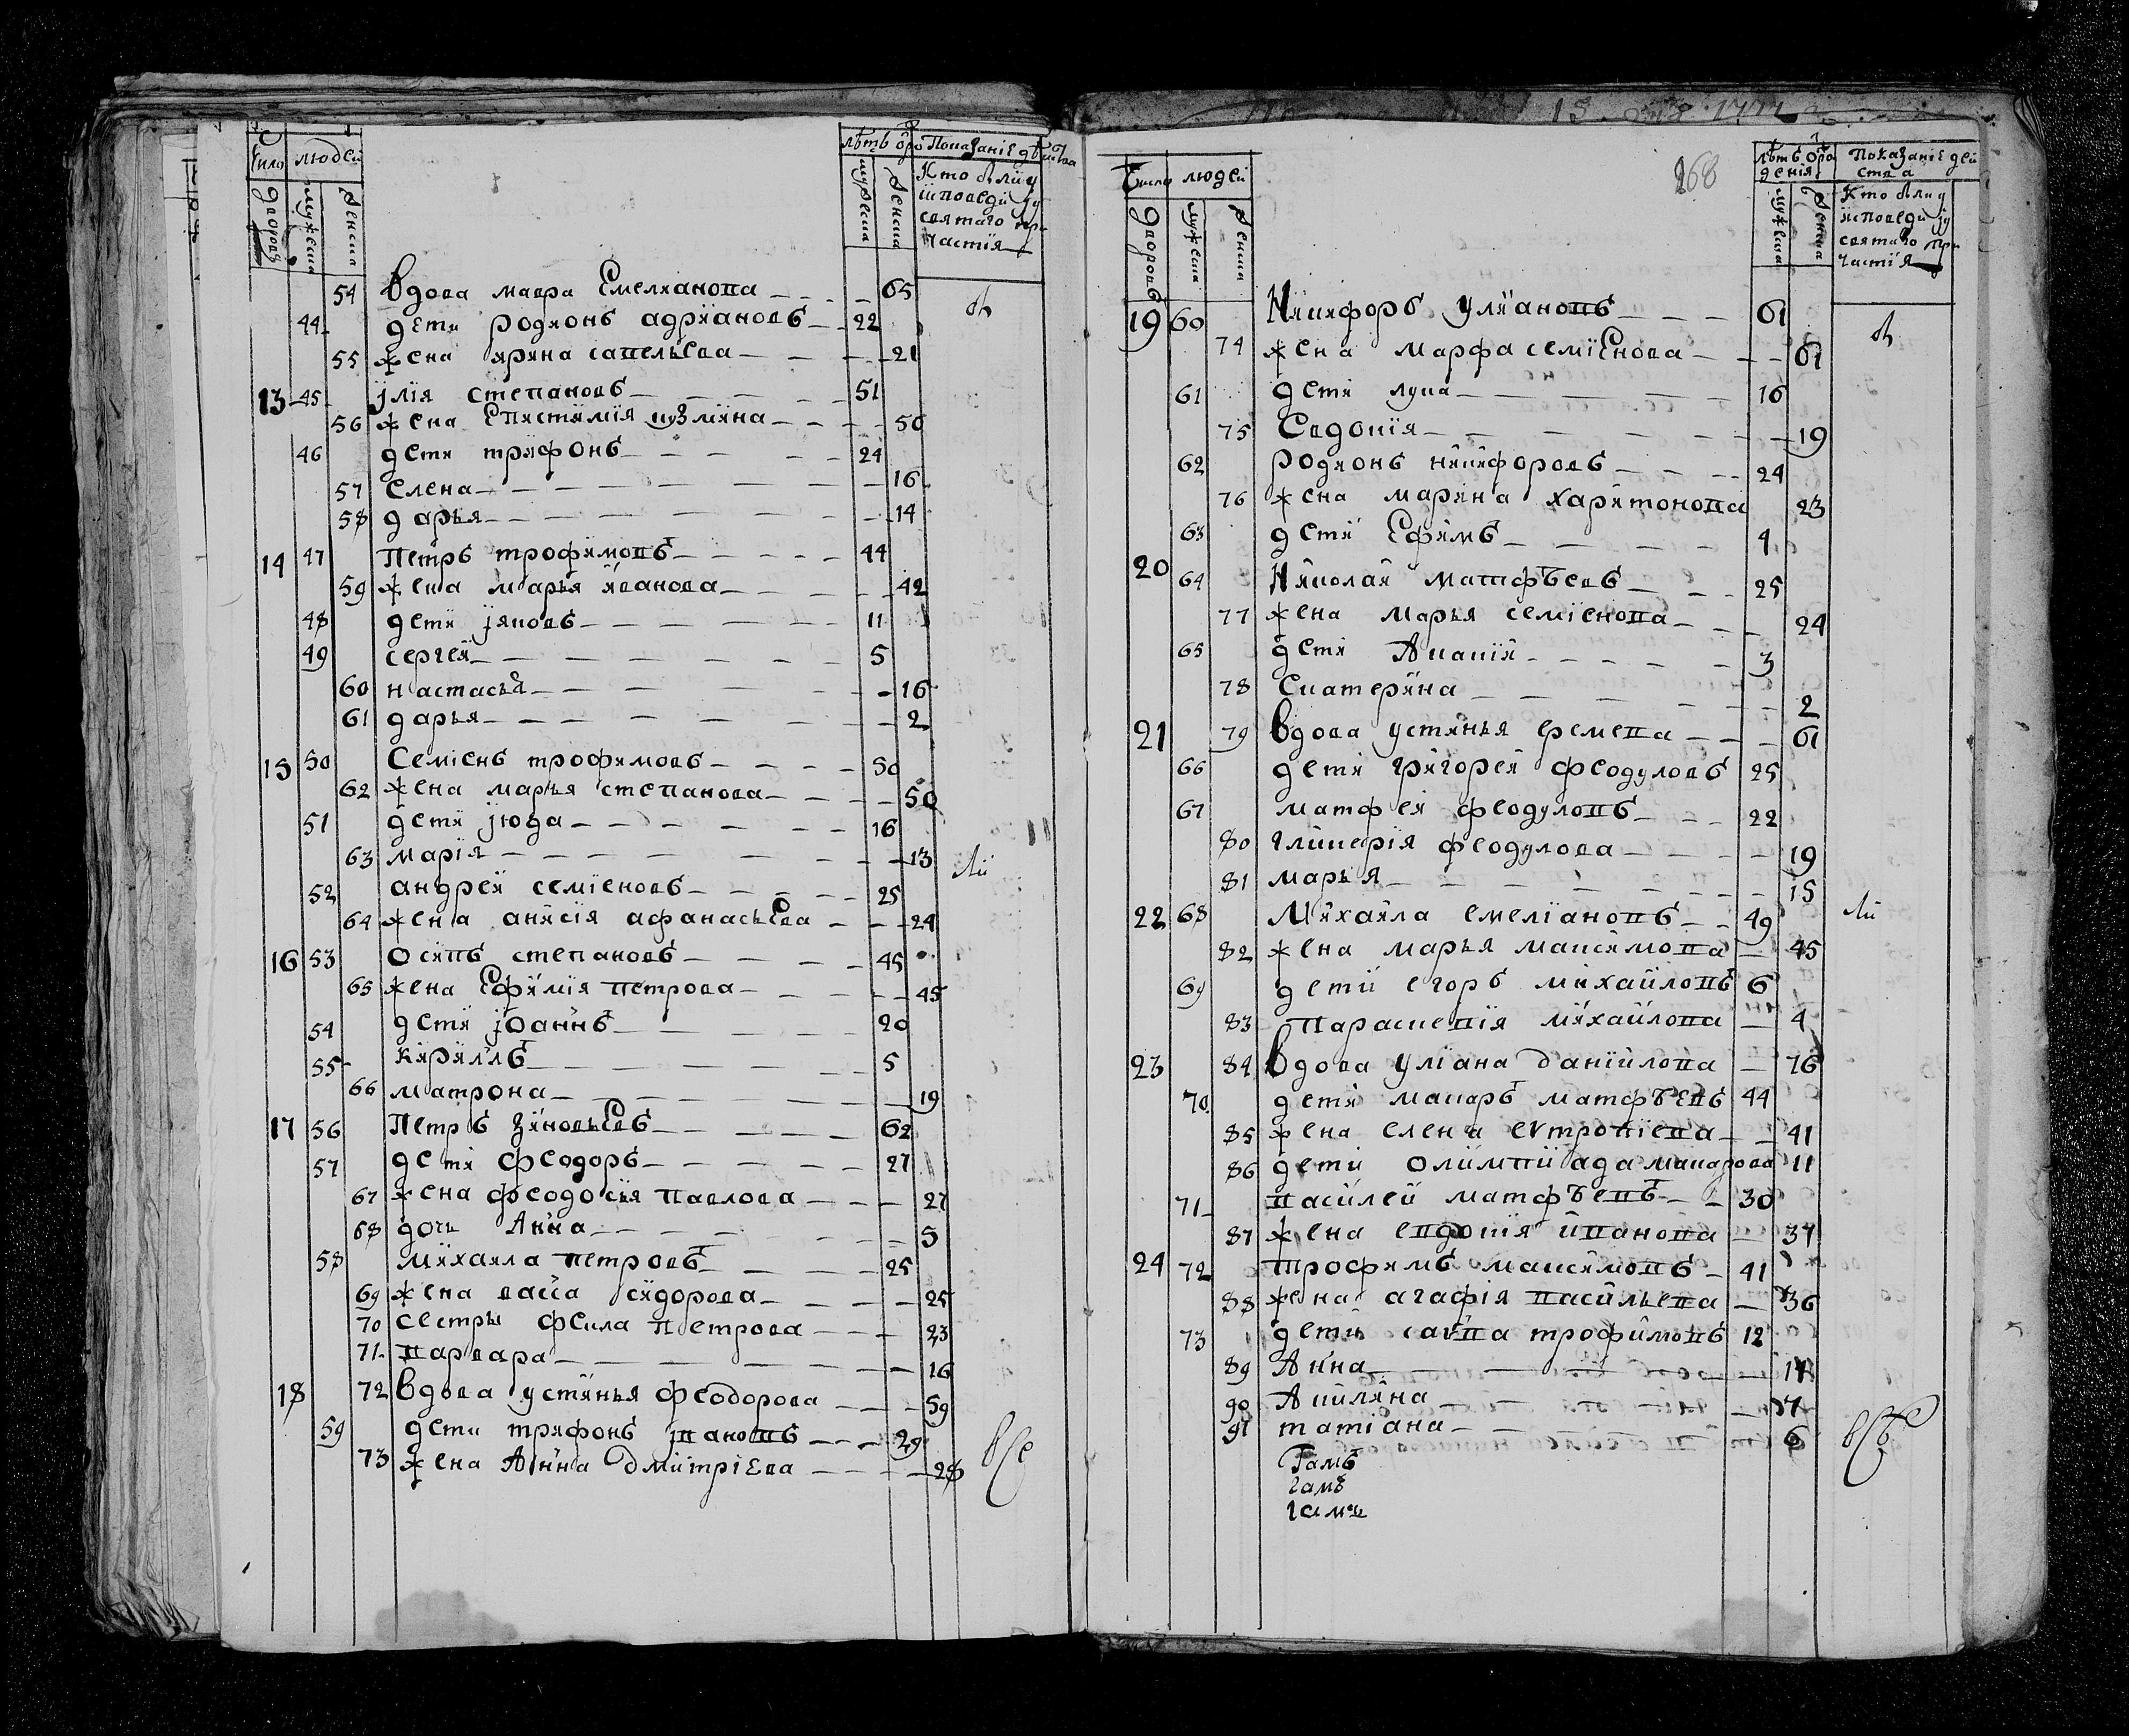 Число людей
дворовъ
мужеска
женска
лѣтъ ѿро
Показаніе дѣйства
мужеска
женска
Кто былъ у
исповеди и у
святаго при
частія
54 Вдова мавра Емеліанова 65
44 дети родионъ адріановъ 22
55 жена ирина савельева 21
13 45 Iлія степановъ 51
56 жена Епистимія кузмина 50
46 дети трифонъ 24
57 елена 16
58 дарья 14
14 47 Петръ трофимовъ 44
59 жена марья иванова 42
48 дети іяковъ 11
49 сергей 5
60 настасья 16
61 дарья 2
15 50 Семіенъ трофимовъ 50
62 жена марья степанова 50
51 дети іюда 16
63 марія 13
52 андрей семіеновъ 25
64 жена анисія афанасьева 24
16 53 Осипъ степановъ 45
65 жена Ефимія петрова 45
54 дети іоаннъ 20
55 кириллъ 5
66 матрона 19
17 56 Петръ Зиновьевъ 62
57 дети феодоръ 27
67 жена феодосия павлова 27
68 дочь Анна 5
58 михаила петровъ 25
69 жена васса сидорова 25
70 сестры фекла петрова 23
71 варвара 16
18 72 Вдова устинья феодорова 59
59 дети трифонъ івановъ 29
73 жена Анна дмитріева 28
все
268
Число людей
дворовъ
мужеска
женска
лѣтъ ѿро
денія
Показаніе дей
ства
мужеска
женска
Кто былъ у
исповеди и у
святаго при
частія
19 60 Никифоръ уліановъ 61
74 жена марфа семіенова 61
61 дети лука 16
75 Евдокія 19
62 родионъ никифоровъ 24
76 жена марина харитонова 23
63 дети Ефимъ 4
20 64 Николай матфѣевъ 25
77 жена марья семіенова 24
65 дети Ананій 3
78 Екатерина 2
21 79 Вдова устинья еремева 61
66 дети григорей феодуловъ 25
67 матфей феодуловъ 22
80 гликерія феодулова 19
81 марья 15
22 68 Михаила емеліановъ 49
82 жена марья максимова 45
69 дети егоръ михайловъ 6
83 Параскевія михайлова 4
23 84 Вдова уліана данійлова 76
70 дети макаръ матфѣевъ 44
85 жена елена еѵтропіева 41
86 дети олимпиада макарова 11
71 василей матфѣевъ 30
87 жена евдокія иванова 37
24 72 трофимъ максимовъ 41
88 жена агафія васильева 36
73 дети савва трофимовъ 12
89 Анна 14
90 Акилина 7
91 татіана 6